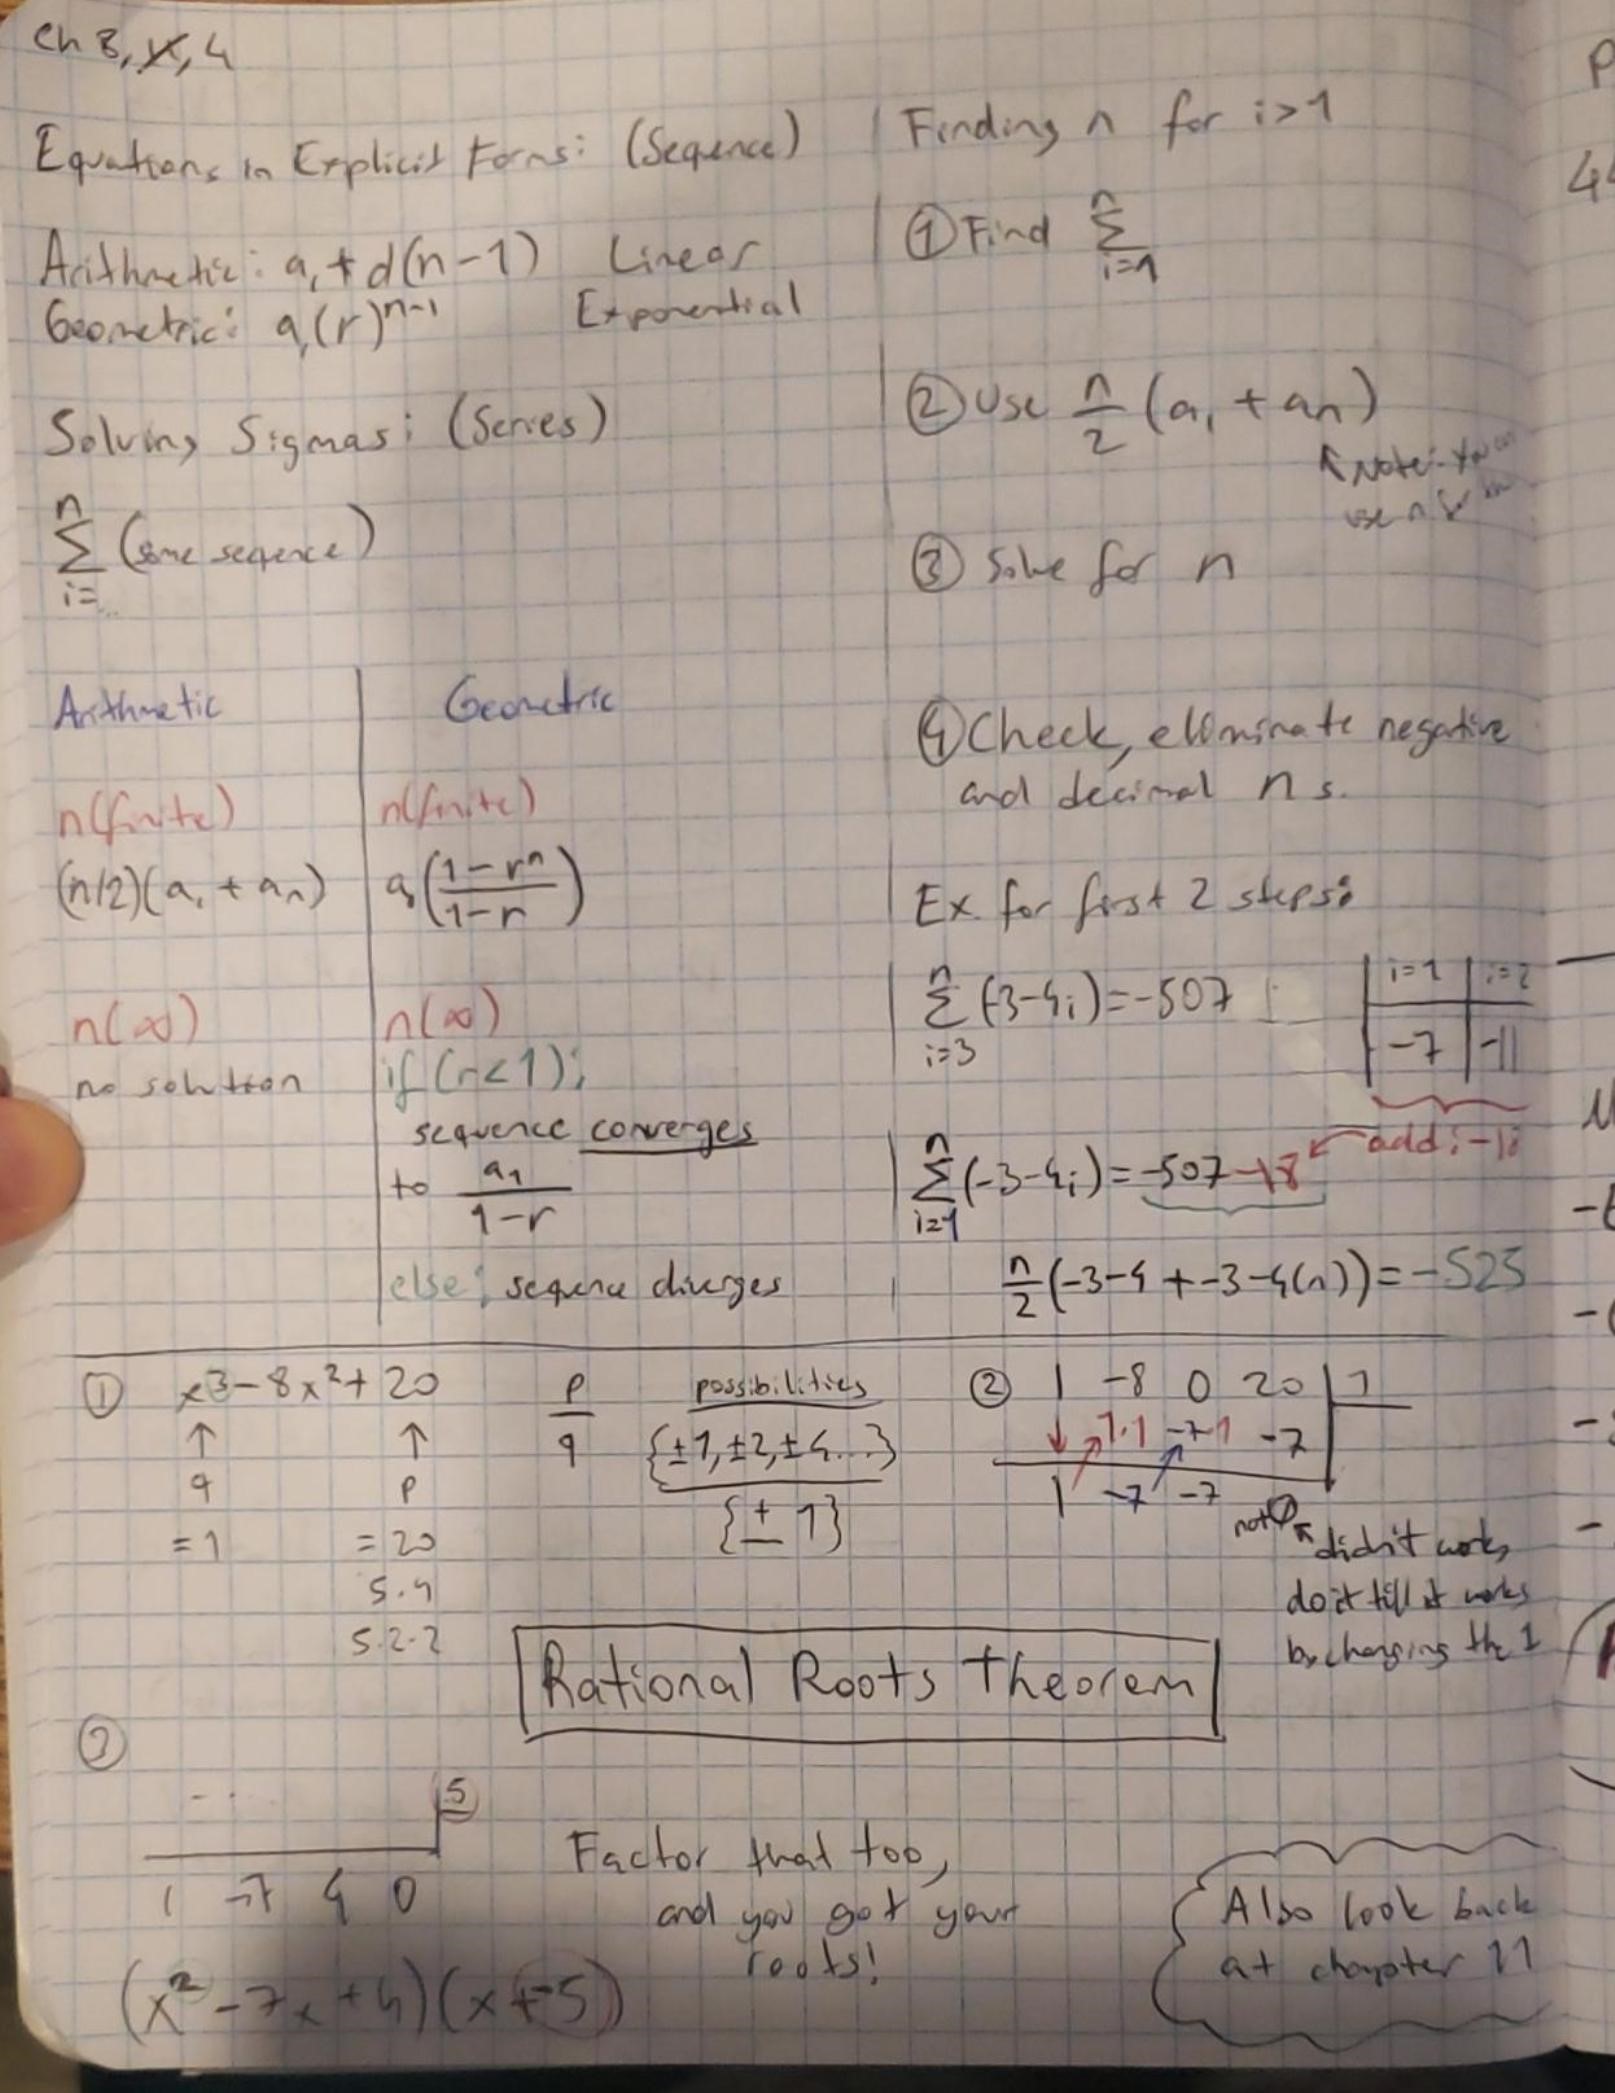 Ch 8, 4
Equations in Explicit Forms: (Sequence)
Arithmetic: a₁ + d(n-1) Linear
Geometric: a₁(r)ⁿ⁻¹ Exponential
Solving Sigmas: (Series)
n
Σ (some sequence)
i=...
Arithmetic | Geometric
n(finite) | n(finite)
(n/2)(a₁ + aₙ) | a₁((1-rⁿ)/(1-r))
n(∞) | n(∞)
no solution | if (r<1);
sequence converges
to a₁/(1-r)
else; sequence diverges
Finding n for i>1
① Find Σ
n
i=1
② Use n/2 (a₁ + aₙ)
↑ Note: You can
use n for
③ Solve for n
④ Check, eliminate negative
and decimal n s.
Ex. for first 2 steps:
n
Σ (-3-4i) = -507
i=3
i=1 | i=2
-7 | -11
add: -18
n
Σ (-3-4i) = -507 -18
i=1
n/2 (-3-4 + -3-4(n)) = -525
① x³ - 8x² + 20
↑ ↑
q p
=1 =20
5·4
5·2·2
p/q
possibilities
{±1, ±2, ±4...}
{± 1}
② 1 -8 0 20 | 1
↓ 1·1 -7·1 -7
1 -7 -7
not 0
didn't work,
do it till it works
by changing the 1
Rational Roots Theorem
③
... 5
1 -7 4 0
(x² - 7x + 4)(x + -5)
Factor that too,
and you got your
roots!
Also look back
at chapter 11